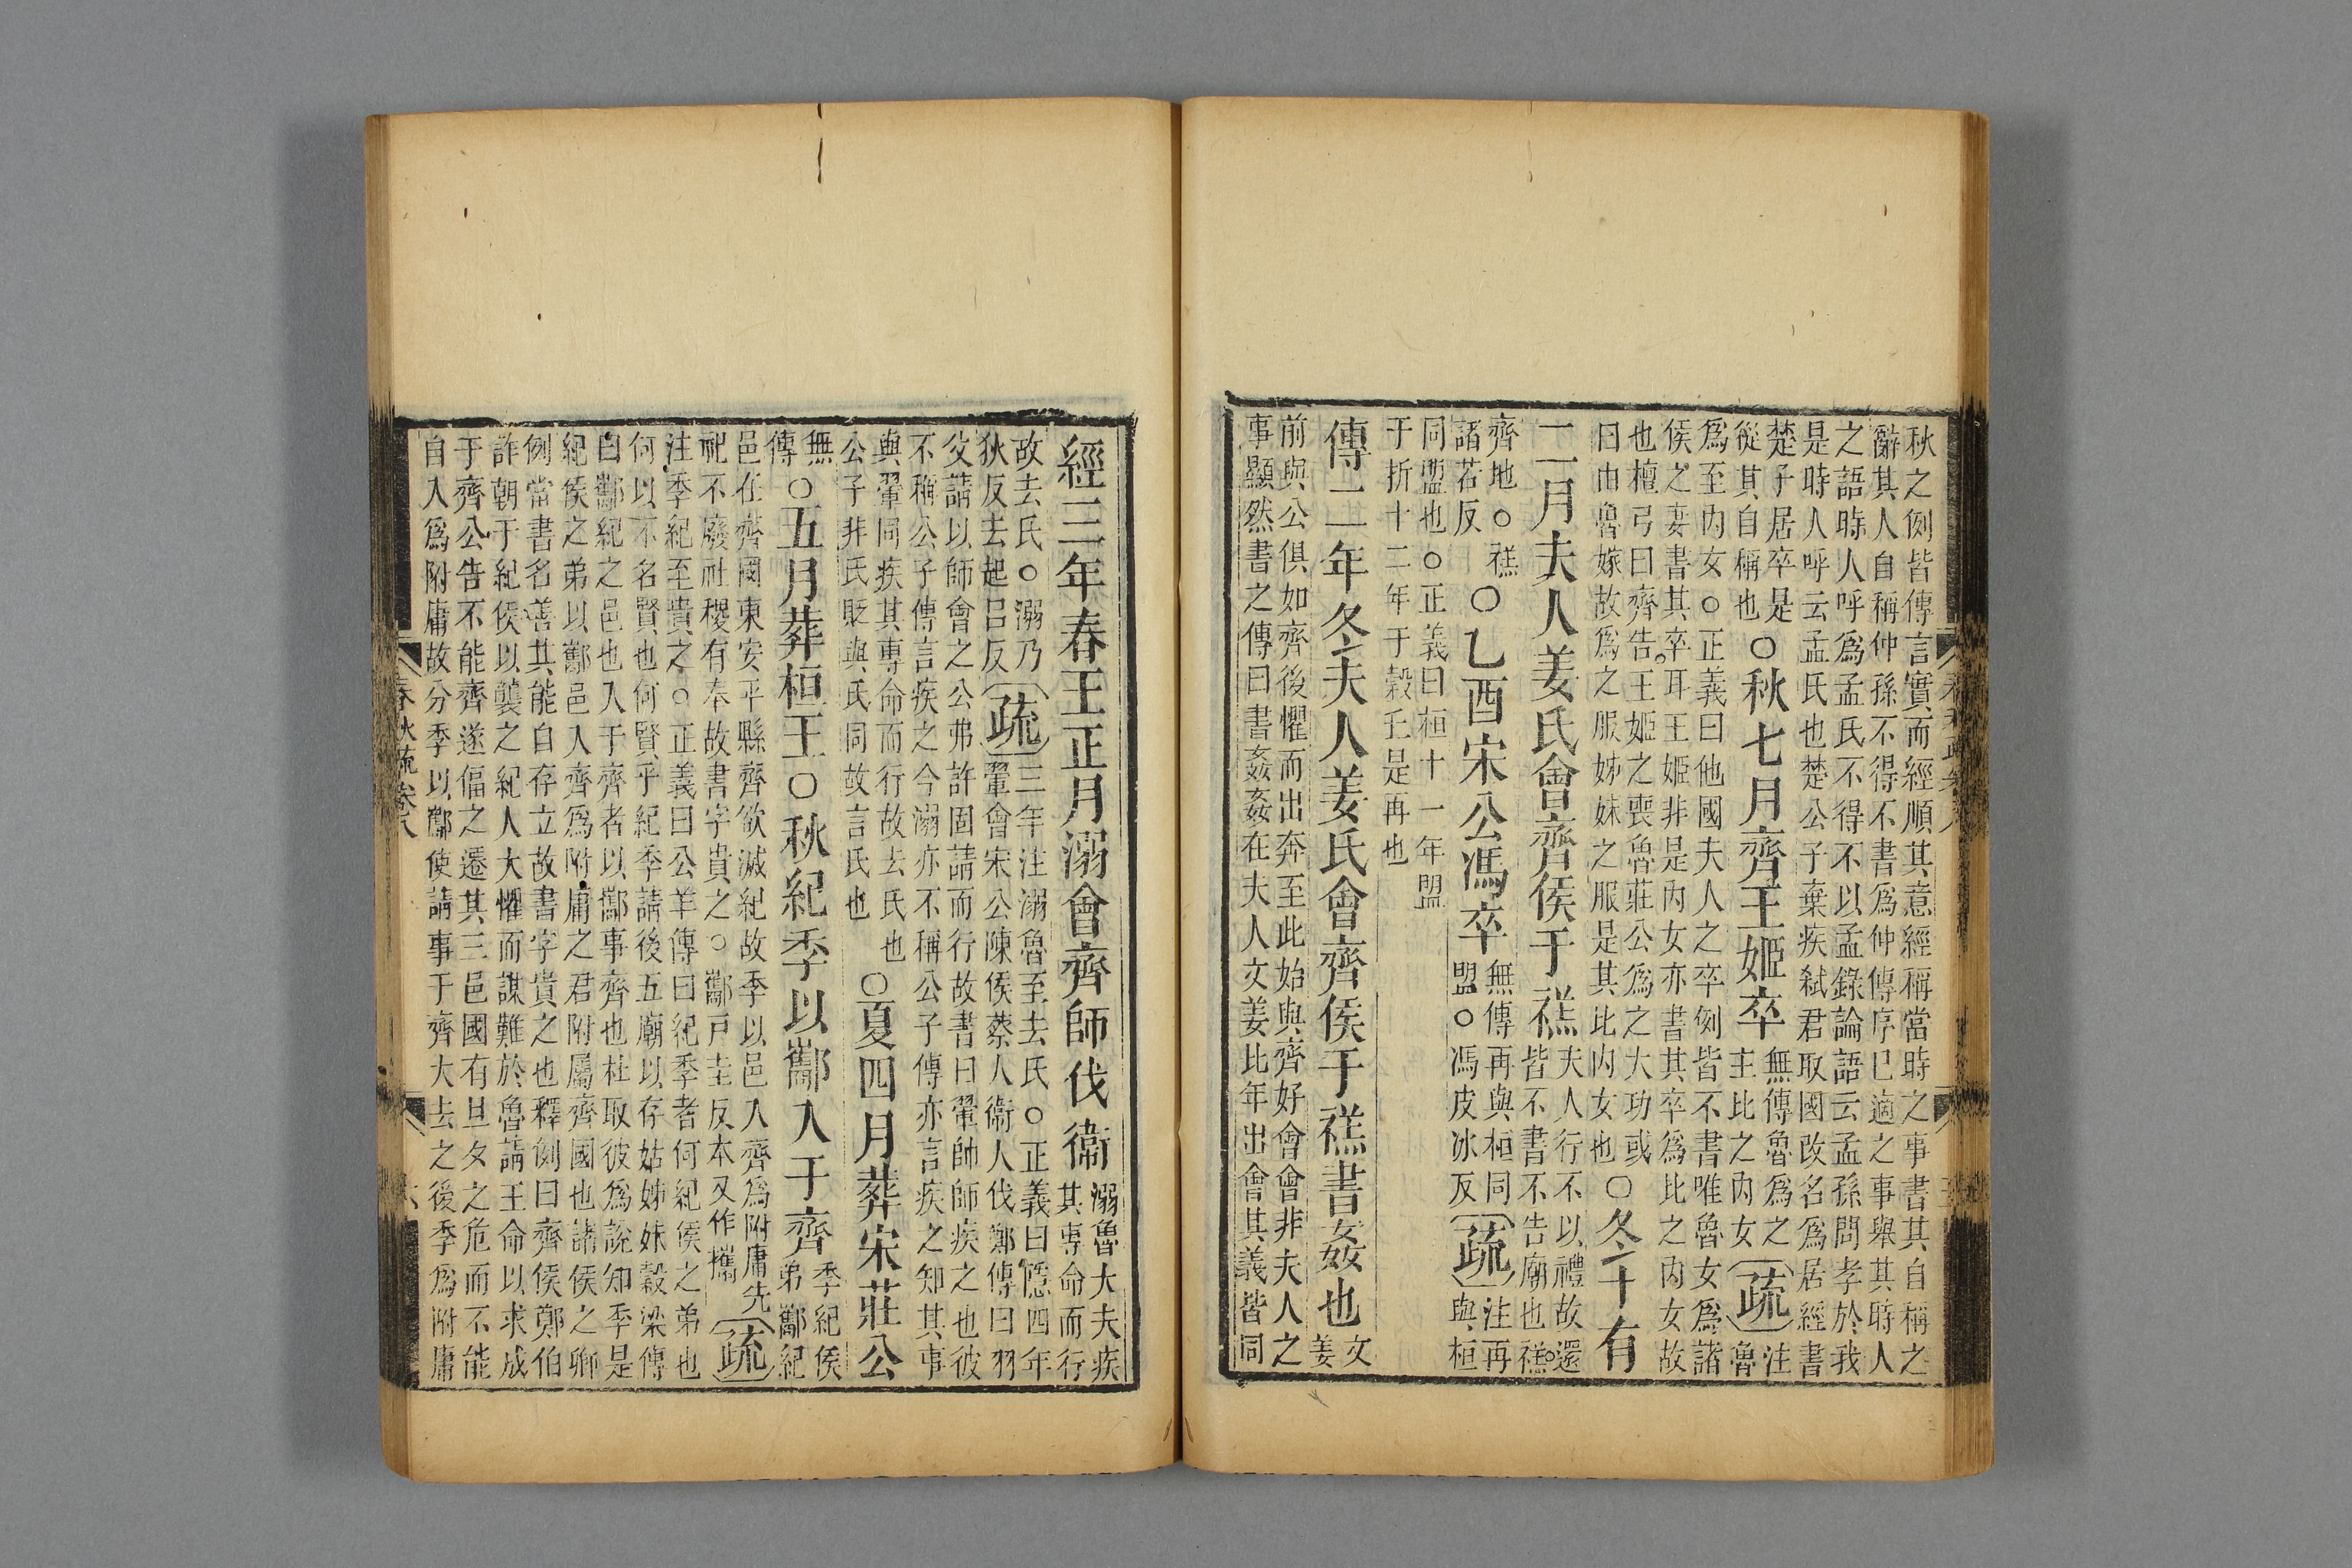 秋之例皆傳言實而經順其意經稱當時之事書其自稱之
辭其人自稱仲孫不得不書爲仲傳序已適之事舉其時人
之語時人呼爲孟氏不得不以孟錄論語云孟孫問孝於我
是時人呼云孟氏也楚公子棄疾弒君取國改名爲居經書
楚子居卒是
從其自稱也
○秋七月齊王姬卒
無傳魯爲之
主比之內女
疏
注
魯
爲至內女○正義曰他國夫人之卒例皆不書唯魯女爲諸
侯之妻書其卒耳王姬非是內女亦書其卒爲比之內女故
也檀弓曰齊告王姬之喪魯莊公爲之大功或
曰由魯嫁故爲之服姊妹之服是其比內女也
○冬十有
二月夫人姜氏會齊侯于禚
夫人行不以禮故還
皆不書不告廟也禚
齊地○禚
諸若反
○乙酉宋公馮卒
無傳再與桓同
盟○馮皮冰反
疏
注再
與桓
同盟也○正義曰桓十一年盟
于折十二年于穀丘是再也
傳二年冬夫人姜氏會齊侯于禚書姦也
文
姜
前與公俱如齊後懼而出奔至此始與齊好會會非夫人之
事顯然書之傳曰書姦姦在夫人文姜比年出會其義皆同
經三年春王正月溺會齊師伐衛
溺魯大夫疾
其專命而行
故去氏○溺乃
狄反去起呂反
疏
三年注溺魯至去氏○正義曰隱四年
翬會宋公陳侯蔡人衛人伐鄭傳曰羽
父請以師會之公弗許固請而行故書曰翬帥師疾之也彼
不稱公子傳言疾之今溺亦不稱公子傳亦言疾之知其事
與翬同疾其專命而行故去氏也
公子非氏貶與氏同故言氏也
○夏四月葬宋莊公
無
傳
○五月葬桓王○秋紀季以酅入于齊
季紀侯
弟酅紀
邑在齊國東安平縣齊欲滅紀故季以邑入齊爲附庸先
祀不廢社稷有奉故書字貴之○酅戸圭反本又作攜
疏
注季紀至貴之○正義曰公羊傳曰紀季者何紀侯之弟也
何以不名賢也何賢乎紀季請後五廟以存姑姊妹穀梁傳
曰酅紀之邑也入于齊者以酅事齊也杜取彼爲說知季是
紀侯之弟以酅邑入齊爲附庸之君附屬齊國也諸侯之卿
例當書名善其能自存立故書字貴之也釋例曰齊侯鄭伯
詐朝于紀侯以襲之紀人大懼而謀難於魯請王命以求成
于齊公告不能齊遂偪之遷其三邑國有旦夕之危而不能
自入爲附庸故分季以酅使請事于齊大去之後季爲附庸
春秋疏卷八
六